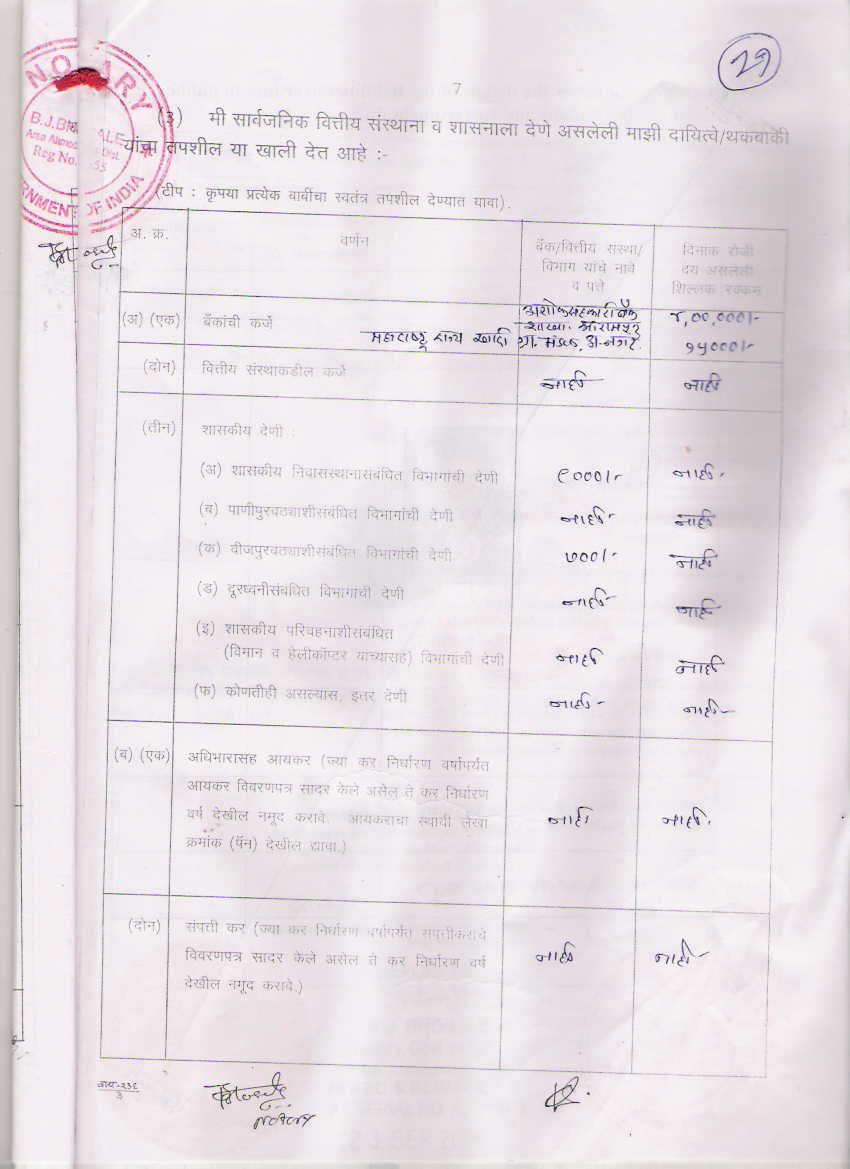 29
7
NOTARY
GOVERNMENT OF INDIA
Reg No.
(३) मी सार्वजनिक वित्तीय संस्थाना व शासनाला देणे असलेली माझी दायित्वे/थकबाकी
यांचा तपशील या खाली देत आहे :-
(टीप : कृपया प्रत्येक बाबींचा स्वतंत्र तपशील देण्यात यावा).
अ. क्र. वर्णन बँक/वित्तीय संस्था/ दिनांक रोजी
विभाग यांचे नावे देय असलेली
व पत्ते शिल्लक रक्कम
(अ) (एक) बँकांची कर्जे अशोक सहकारी बँक ४,००,०००/-
शाखा. श्रीरामपूर
महाराष्ट्र राज्य खादी ग्रा. मंडळ, अ.नगर. १५०००/-
(दोन) वित्तीय संस्थाकडील कर्जे नाही नाही
(तीन) शासकीय देणी :
(अ) शासकीय निवासस्थानासंबंधित विभागांची देणी ९०००/- नाही
(ब) पाणीपुरवठ्याशीसंबंधित विभागांची देणी नाही नाही
(क) वीजपुरवठ्याशीसंबंधित विभागांची देणी ७००/- नाही
(ड) दूरध्वनीसंबंधित विभागांची देणी नाही नाही
(इ) शासकीय परिवहनाशीसंबंधित
(विमान व हेलीकॉप्टर यांच्यासह) विभागांची देणी नाही नाही
(फ) कोणतीही असल्यास, इतर देणी नाही- नाही-
(ब) (एक) अधिभारासह आयकर (ज्या कर निर्धारण वर्षापर्यंत
आयकर विवरणपत्र सादर केले असेल ते कर निर्धारण
वर्ष देखील नमूद करावे. आयकराचा स्थायी लेखा नाही नाही.
क्रमांक (पॅन) देखील द्यावा.)
(दोन) संपत्ती कर (ज्या कर निर्धारण वर्षापर्यंत संपत्तीकराचे
विवरणपत्र सादर केले असेल ते कर निर्धारण वर्ष नाही नाही-
देखील नमूद करावे.)
NOTARY